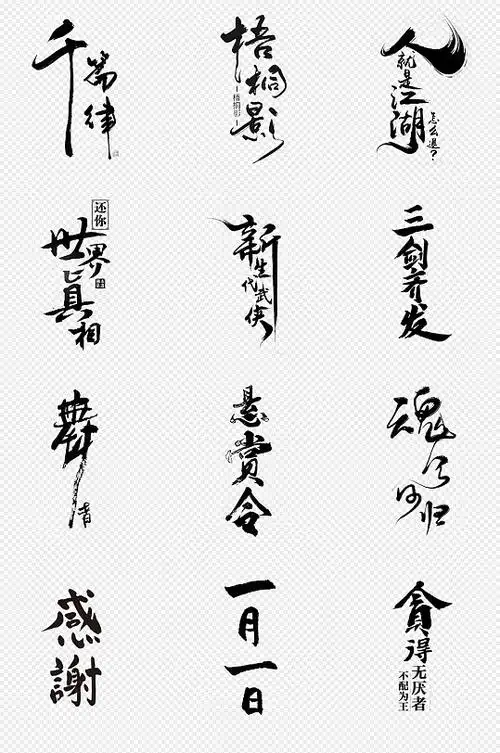 千篇律
梧桐影
梧桐影
人就是江湖
怎么退？
还你
世界真相
新生代武侠
三剑齐发
舞者
悬赏令
魂归
感謝
一月一日
貪得无厌者
不配为王